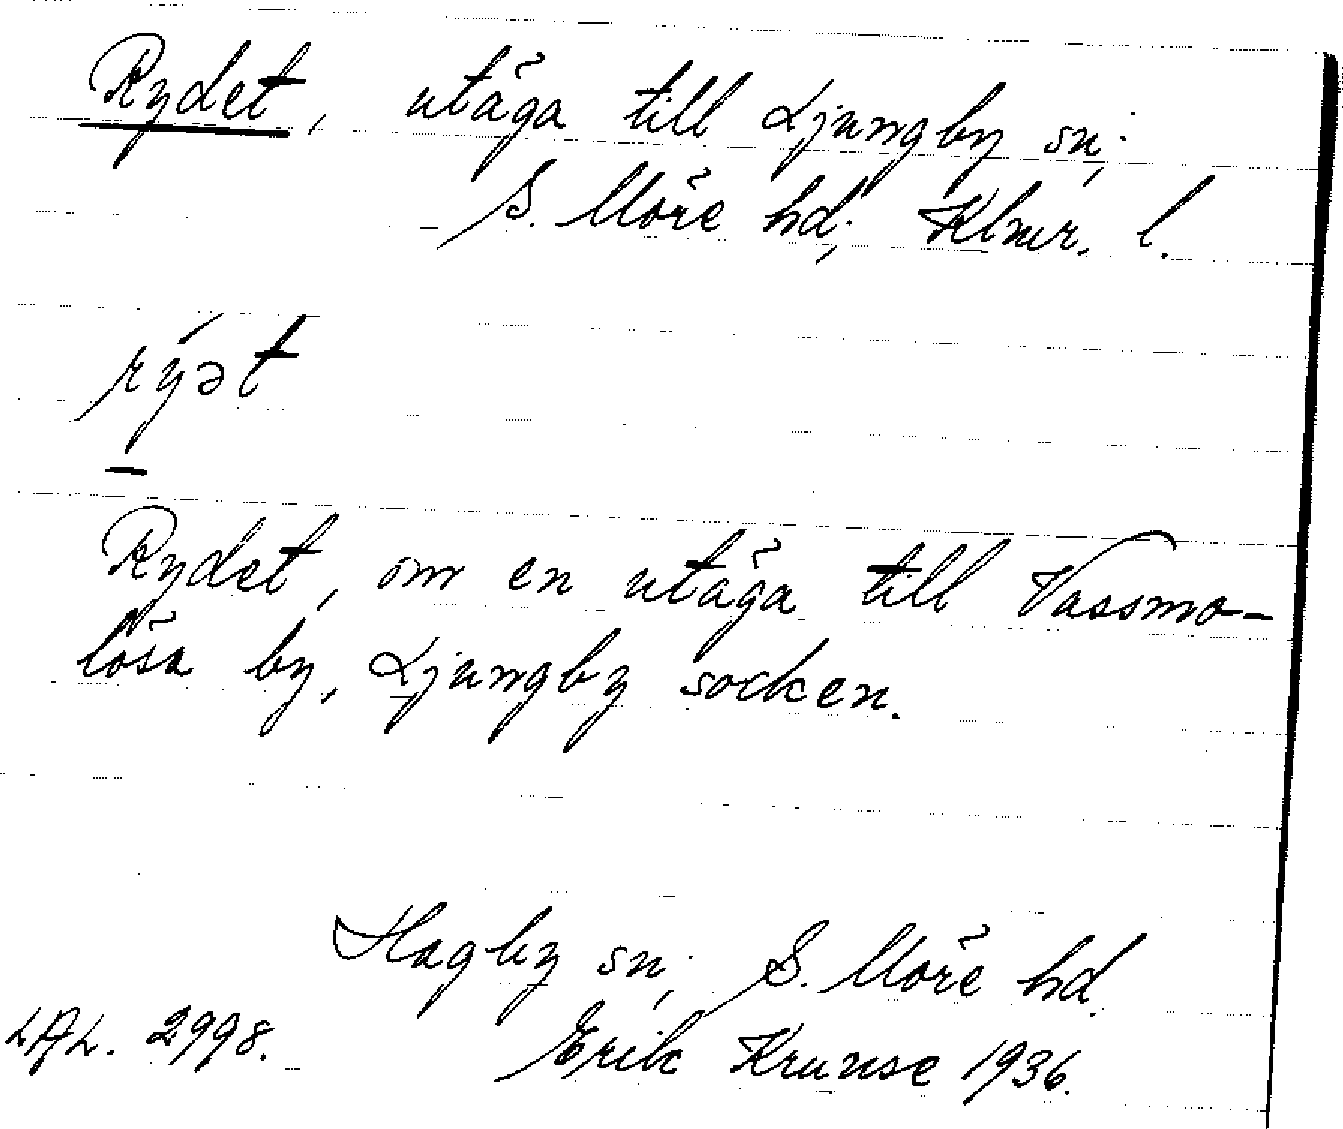 Rydet, utäga till Ljungby sn;
S. Möre hd; Klmr. l.
rýət
Rydet, om en utäga till Vassmo-
lösa by, Ljungby socken.
Hagby sn; S. Möre hd.
LAL. 2998. Erik Krunse 1936.